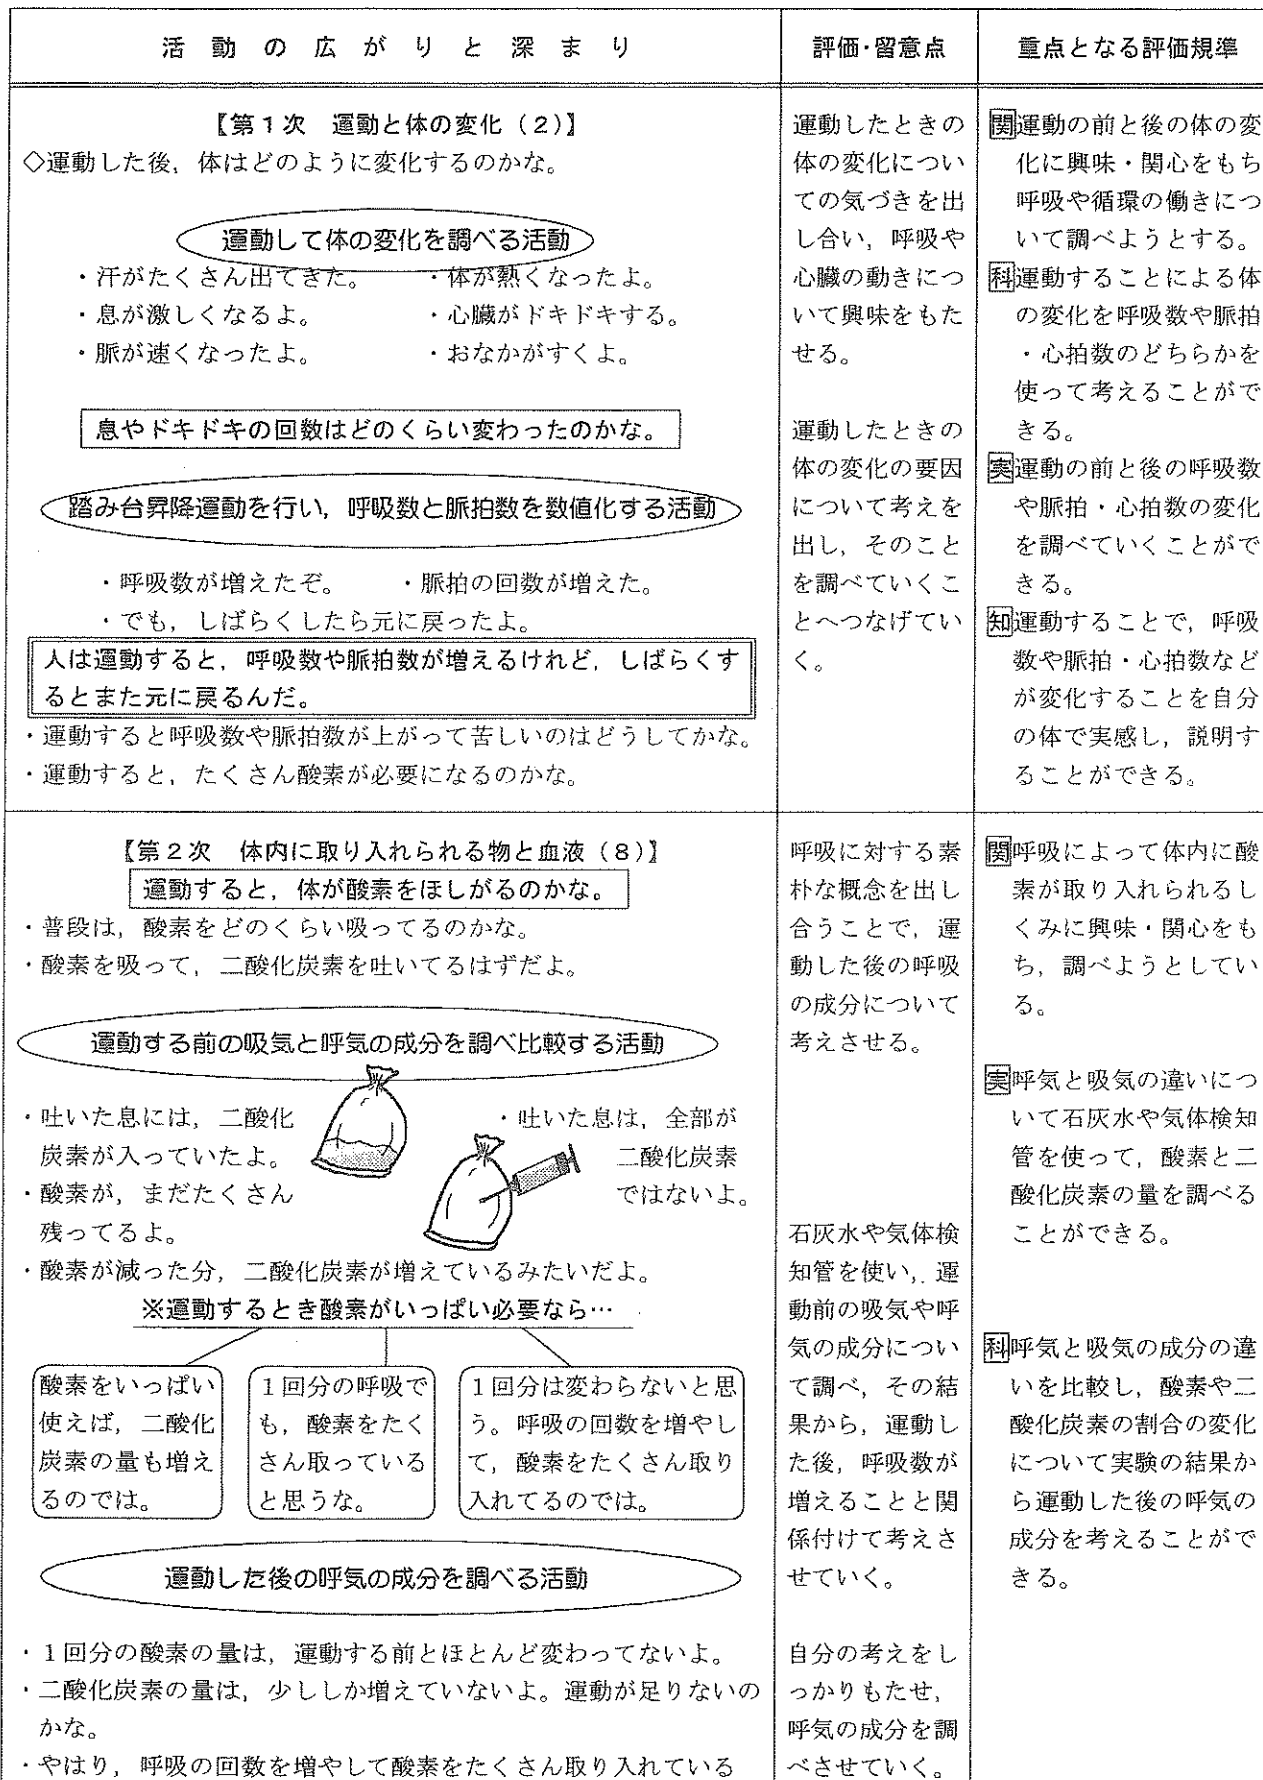 活動の広がりと深まり
評価・留意点
重点となる評価規準
【第1次 運動と体の変化(2)】
◇運動した後,体はどのように変化するのかな。
運動して体の変化を調べる活動
・汗がたくさん出てきた。 ・体が熱くなったよ。
・息が激しくなるよ。 ・心臓がドキドキする。
・脈が速くなったよ。 ・おなかがすくよ。
息やドキドキの回数はどのくらい変わったのかな。
踏み台昇降運動を行い,呼吸数と脈拍数を数値化する活動
・呼吸数が増えたぞ。 ・脈拍の回数が増えた。
・でも,しばらくしたら元に戻ったよ。
人は運動すると,呼吸数や脈拍数が増えるけれど,しばらくす
るとまた元に戻るんだ。
・運動すると呼吸数や脈拍数が上がって苦しいのはどうしてかな。
・運動すると,たくさん酸素が必要になるのかな。
運動したときの
体の変化につい
ての気づきを出
し合い,呼吸や
心臓の動きにつ
いて興味をもた
せる。
運動したときの
体の変化の要因
について考えを
出し,そのこと
を調べていくこ
とへつなげてい
く。
関運動の前と後の体の変
化に興味・関心をもち
呼吸や循環の働きにつ
いて調べようとする。
科運動することによる体
の変化を呼吸数や脈拍
・心拍数のどちらかを
使って考えることがで
きる。
実運動の前と後の呼吸数
や脈拍・心拍数の変化
を調べていくことがで
きる。
知運動することで,呼吸
数や脈拍・心拍数など
が変化することを自分
の体で実感し,説明す
ることができる。
【第2次 体内に取り入れられる物と血液(8)】
運動すると,体が酸素をほしがるのかな。
・普段は,酸素をどのくらい吸ってるのかな。
・酸素を吸って,二酸化炭素を吐いてるはずだよ。
運動する前の吸気と呼気の成分を調べ比較する活動
・吐いた息には,二酸化
炭素が入っていたよ。
・酸素が,まだたくさん
残ってるよ。
・吐いた息は,全部が
二酸化炭素
ではないよ。
・酸素が減った分,二酸化炭素が増えているみたいだよ。
※運動するとき酸素がいっぱい必要なら…
酸素をいっぱい
使えば,二酸化
炭素の量も増え
るのでは。
1回分の呼吸で
も,酸素をたく
さん取っている
と思うな。
1回分は変わらないと思
う。呼吸の回数を増やし
て,酸素をたくさん取り
入れてるのでは。
運動した後の呼気の成分を調べる活動
・1回分の酸素の量は,運動する前とほとんど変わってないよ。
・二酸化炭素の量は,少ししか増えていないよ。運動が足りないの
かな。
・やはり,呼吸の回数を増やして酸素をたくさん取り入れている
呼吸に対する素
朴な概念を出し
合うことで,運
動した後の呼吸
の成分について
考えさせる。
石灰水や気体検
知管を使い,運
動前の吸気や呼
気の成分につい
て調べ,その結
果から,運動し
た後,呼吸数が
増えることと関
係付けて考えさ
せていく。
自分の考えをし
っかりもたせ,
呼気の成分を調
べさせていく。
関呼吸によって体内に酸
素が取り入れられるし
くみに興味・関心をも
ち,調べようとしてい
る。
実呼気と吸気の違いにつ
いて石灰水や気体検知
管を使って,酸素と二
酸化炭素の量を調べる
ことができる。
科呼気と吸気の成分の違
いを比較し,酸素や二
酸化炭素の割合の変化
について実験の結果か
ら運動した後の呼気の
成分を考えることがで
きる。